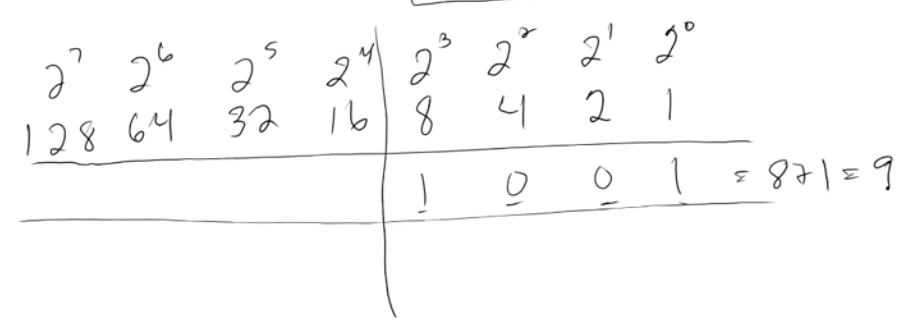 2⁷ 2⁶ 2⁵ 2⁴ 2³ 2² 2¹ 2⁰
128 64 32 16 8 4 2 1
1 0 0 1 = 8+1 = 9